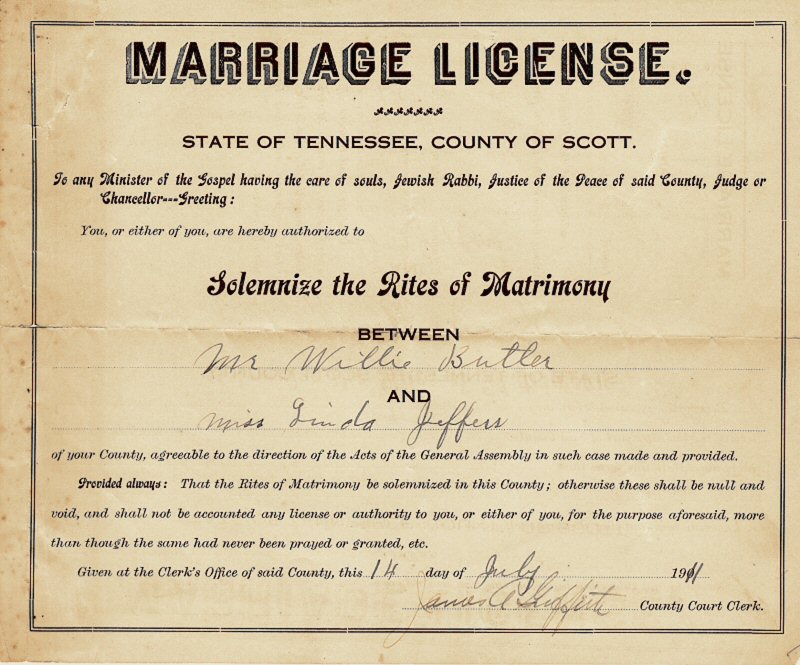 MARRIAGE LICENSE.
STATE OF TENNESSEE, COUNTY OF SCOTT.
To any Minister of the Gospel having the care of souls, Jewish Rabbi, Justice of the Peace of said County, Judge or
Chancellor---Greeting:
You, or either of you, are hereby authorized to
Solemnize the Rites of Matrimony
BETWEEN
Mr Willie Butler
AND
Miss Linda Jeffers
of your County, agreeable to the direction of the Acts of the General Assembly in such case made and provided.
Provided always: That the Rites of Matrimony be solemnized in this County; otherwise these shall be null and
void, and shall not be accounted any license or authority to you, or either of you, for the purpose aforesaid, more
than though the same had never been prayed or granted, etc.
Given at the Clerk's Office of said County, this 14 day of July 1911
James Griffith County Court Clerk.